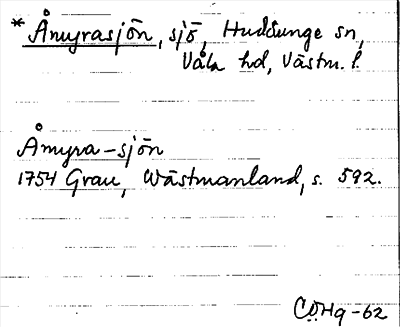 * Åmyrasjön, sjö, Huddunge sn,
Våla hd, Västm. l.
Åmyra-sjön
1754 Grau, Wästmanland, s. 592.
CÖHg -62